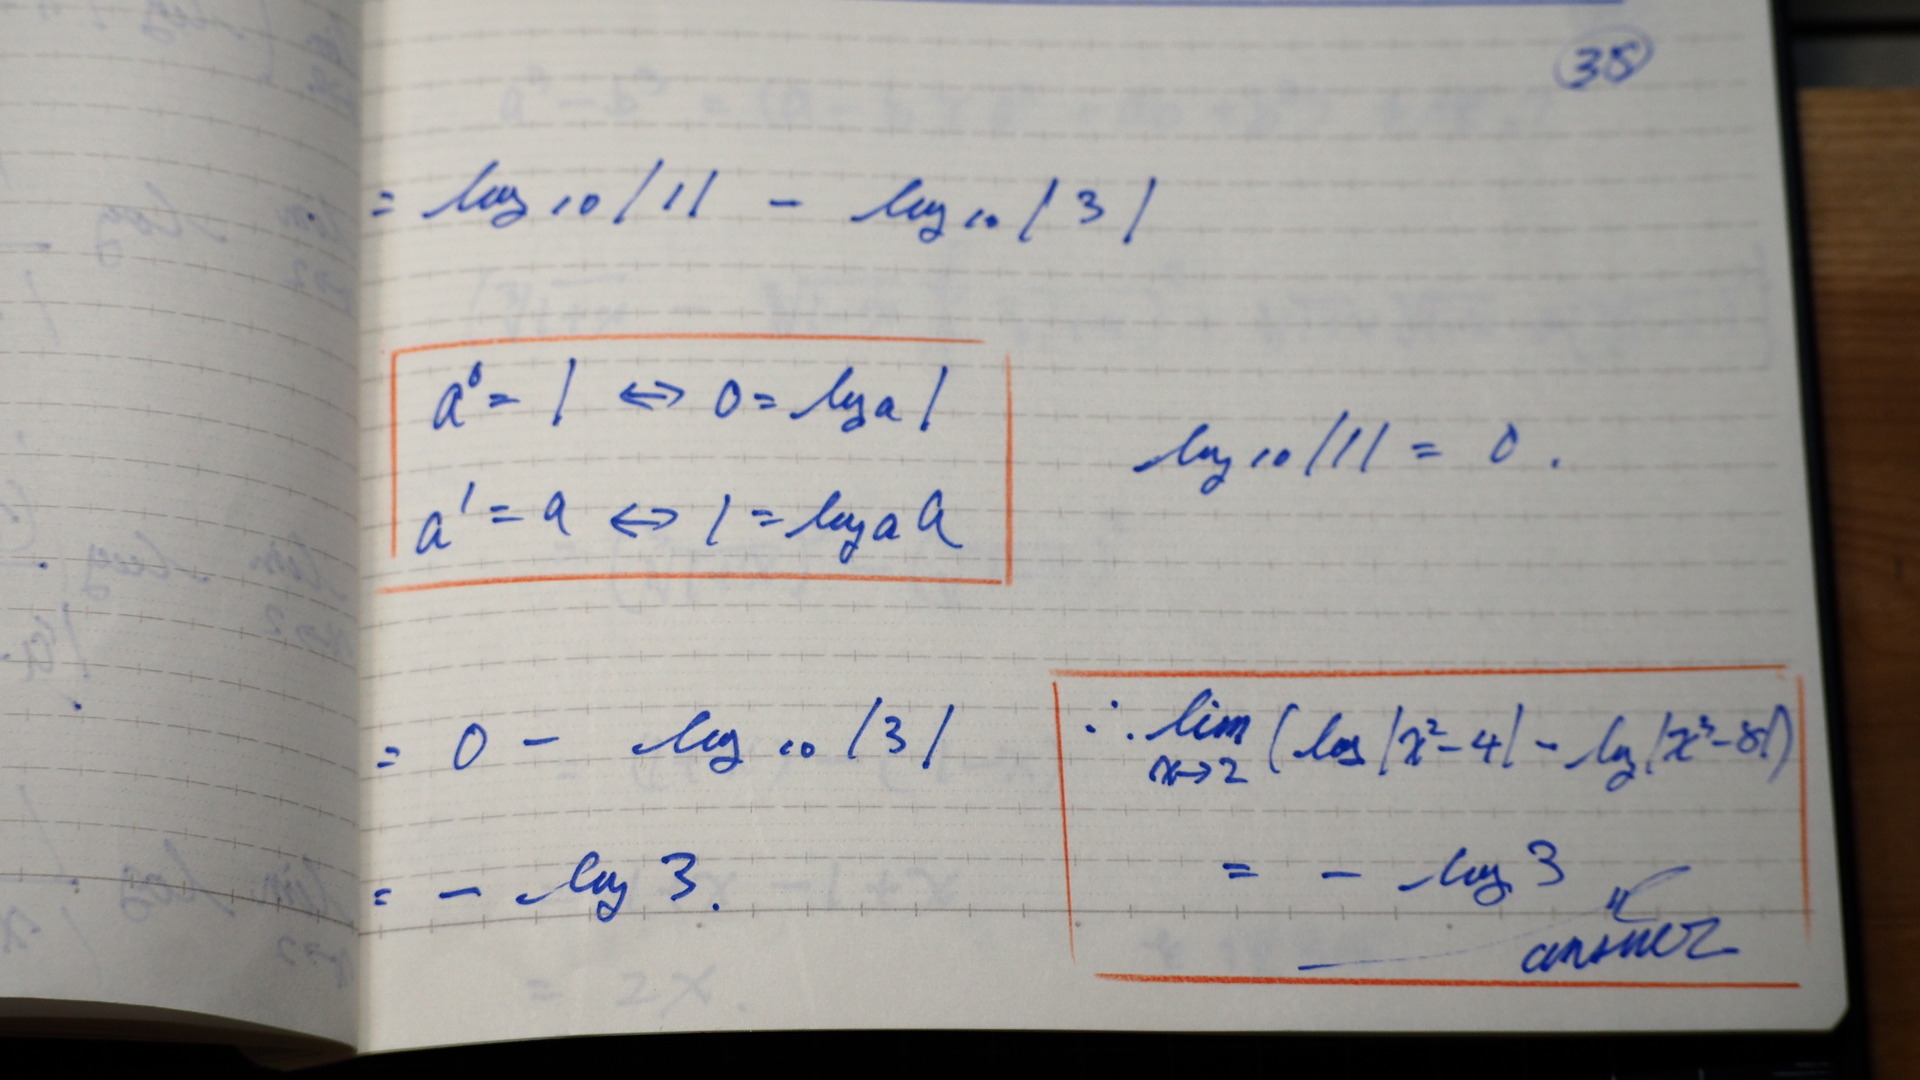 35
= log₁₀|1| - log₁₀|3|
a⁰ = 1 ⇔ 0 = logₐ1
a¹ = a ⇔ 1 = logₐa
log₁₀|1| = 0.
= 0 - log₁₀|3|
= - log 3.
∴ lim (log|x²-4| - log|x³-8|)
x→2
= - log 3
answer